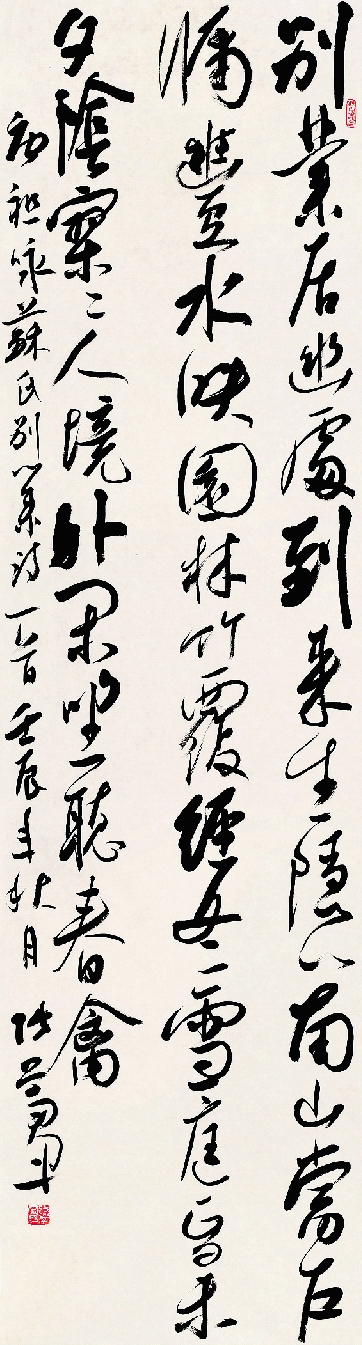 别業居幽處到来生隱心南山當户
牖灃水映園林竹覆經冬雪庭昏未
夕陰寥〻人境外閑坐聽春禽
祖咏蘇氏别業詩一首壬辰年秋月